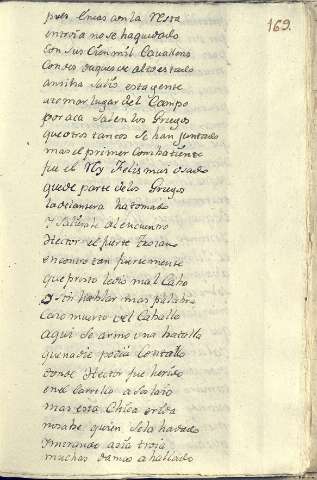 169.
pues Eneas con la Resta
entroia no se ha quedado
Con sus Cien mil Cavalleros
Condes duques de alto estado
arriba salio esta gente
a tomar lugar del Campo
por aca salen los Griegos
que otros tantos se han juntado
mas el primer Combatiente
fue el Rey Felis mui osado
que de parte de los Griegos
la delantera ha tomado
y saliole al encuentro
Hector el fuerte troiano
encontro tan fuertemente
que presto ledio mal Cabo
sin hablar mas palabra
Caio muerto del Caballo
aqui se armo una batalla
que nadie podia Contallo
donde Hector fue herido
en el Carrillo a soslaio
mas esta Chica erida
no sabe quien sela ha dado
y mirando acia troia
muchas damas a hallado